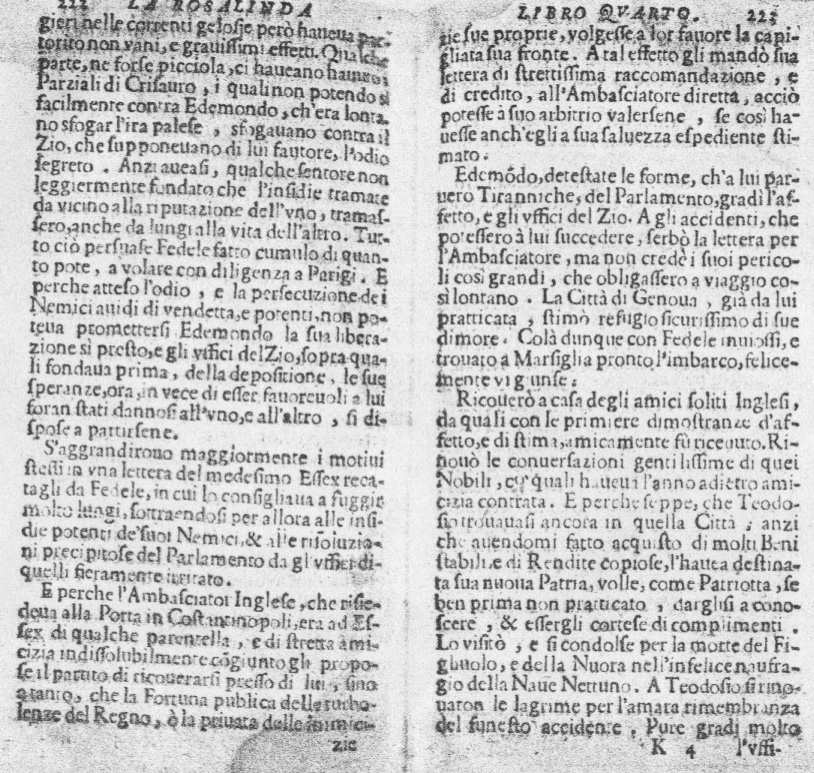 222 LA ROSALINDA
gieri nelle correnti gelosie però haueua par-
torito non vani, e grauissimi effetti. Qualche
parte, ne forse picciola, ci haueano hauuto i
Parziali di Crisauro, i quali non potendo sì
facilmente contra Edemondo, ch'era lonta-
no sfogar l'ira palese, sfogauano contra il
Zio, che supponeuano di lui fautore, l'odio
segreto. Anzi aueasi, qualche sentore non
leggiermente fondato che l'insidie tramate
da vicino alla riputazione dell'vno, tramas-
sero, anche da lungi alla vita dell'altro. Tut-
to ciò persuase Fedele fatto cumulo di quan-
to pote, a volare con diligenza a Parigi. E
perche atteso l'odio, e la persecuzione de i
Nemici auidi di vendetta, e potenti, non po-
teua promettersi Edemondo la sua libera-
zione sì presto, e gli vffici del Zio, sopra qua-
li fondaua prima, della depositione, le sue
speranze, ora, in vece di esser fauoreuoli a lui
foran stati dannosi all'vno, e all'altro, si di-
spose a partirsene.
S'aggrandirono maggiormente i motiui
stessi in vna lettera del medesimo Essex reca-
tagli da Fedele, in cui lo consigliaua a fuggir
molto lungi, sottraendosi per allora alle insi-
die potenti de'suoi Nemici, & alle risoluzio-
ni precipitose del Parlamento da gl'vffici di-
quelli fieramente irritato.
E perche l'Ambasciator Inglese, che risie-
deua alla Porta in Costantinopoli, era ad Es-
sex di qualche parentella, e di stretta ami-
cizia indissolubilmente cōgiunto gli propo-
se il partito di ricouerarsi presso di lui, sino
a tanto, che la Fortuna publica delle turbo-
lenze del Regno, ò la priuata delle inimici-
zie
LIBRO QVARTO. 223
zie sue proprie, volgesse a lor fauore la capi-
gliata sua fronte. A tal effetto gli mandò sua
lettera di strettissima raccomandazione, e
di credito, all'Ambasciatore diretta, acciò
potesse à suo arbitrio valersene, se così ha-
uesse anch'egli a sua saluezza espediente sti-
mato.
Edemōdo, detestate le forme, ch'a lui par-
uero Tiranniche, del Parlamento, gradì l'af-
fetto, e gli vffici del Zio. A gli accidenti, che
potessero à lui succedere, serbò la lettera per
l'Ambasciatore, ma non credè i suoi perico-
li così grandi, che obligassero a viaggio co-
sì lontano. La Città di Genoua, già da lui
pratticata, stimò refugio sicurissimo di sue
dimore. Colà dunque con Fedele inuiossi, e
trouato a Marsiglia pronto l'imbarco, felice-
mente vi giunse.
Ricouerò a casa degli amici soliti Inglesi,
da quali con le primiere dimostranze d'af-
fetto, e di stima, amicamente fù riceuuto. Ri-
nouò le conuersazioni gentilissime di quei
Nobili, co' quali haueua l'anno adietro ami-
cizia contrata. E perche seppe, che Teodo-
sio trouauasi ancora in quella Città, anzi
che auendomi fatto acquisto di molti Beni
stabili, e di Rendite copiose, l'hauea destina-
ta sua nuoua Patria, volle, come Patriotta, se
ben prima non pratticato, darglisi a cono-
scere, & essergli cortese di complimenti.
Lo visitò, e si condolse per la morte del Fi-
gliuolo, e della Nuora nell'infelice naufra-
gio della Naue Nettuno. A Teodosio si rino-
uaron le lagrime per l'amata rimembranza
del funesto accidente. Pure gradì molto
K 4 l'vffi-